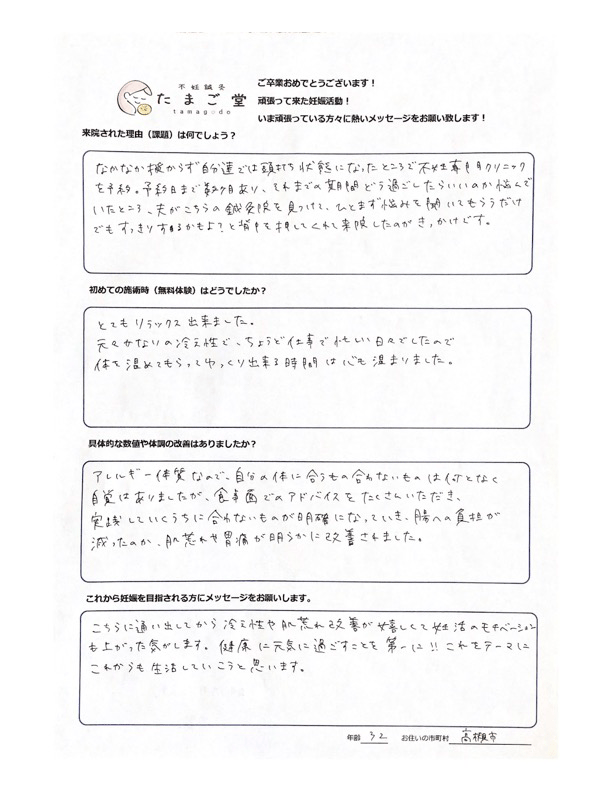 不妊鍼灸
たまご堂
tamagodo
ご卒業おめでとうございます！
頑張って来た妊娠活動！
いま頑張っている方々に熱いメッセージをお願い致します！
来院された理由（課題）は何でしょう？
なかなか授からず自分達では頭打ち状態になったところで不妊専門クリニック
を予約。予約日まで数ヶ月あり、それまでの期間どう過ごしたらいいのか悩んで
いたところ、夫がこちらの鍼灸院を見つけて、ひとまず悩みを聞いてもらうだけ
でもすっきりするかもよ？と背中を押してくれて来院したのがきっかけです。
初めての施術時（無料体験）はどうでしたか？
とてもリラックス出来ました。
元々かなりの冷え性で、ちょうど仕事で忙しい日々でしたので
体を温めてもらってゆっくり出来る時間は心も温まりました。
具体的な数値や体調の改善はありましたか？
アレルギー体質なので、自分の体に合うもの合わないものは何となく
自覚はありましたが、食事面でのアドバイスをたくさんいただき、
実践していくうちに合わないものが明確になっていき、腸への負担が
減ったのか、肌荒れや胃痛が明らかに改善されました。
これから妊娠を目指される方にメッセージをお願いします。
こちらに通い出してから冷え性や肌荒れ改善が嬉しくて妊活のモチベーション
も上がった気がします。健康に元気に過ごすことを第一に!! これをテーマに
これからも生活していこうと思います。
年齢 32 お住いの市町村 高槻市